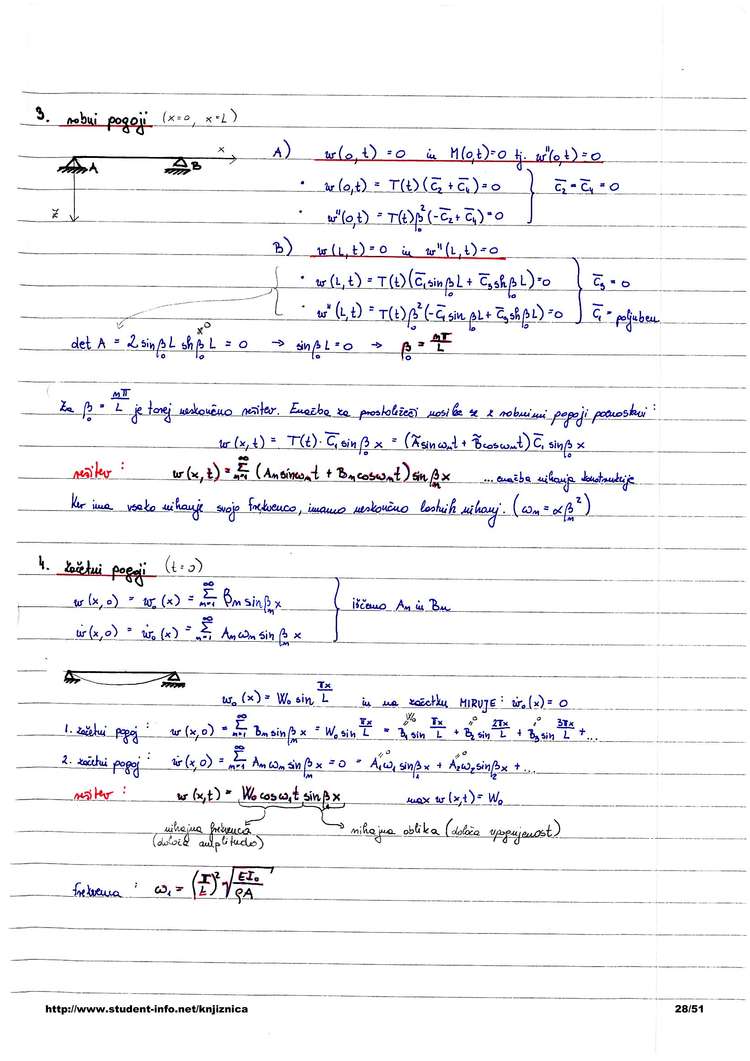 3. robni pogoji (x=0, x=L)
x
A
B
z
A) w(0,t) = 0 in M(0,t)=0 tj. w''(0,t)=0
• w(0,t) = T(t)(C̄₂ + C̄₄) = 0
• w''(0,t) = T(t)β₀²(-C̄₂ + C̄₄) = 0
C̄₂ = C̄₄ = 0
B) w(L,t) = 0 in w''(L,t) = 0
• w(L,t) = T(t)(C̄₁ sin β₀L + C̄₃ sh β₀L) = 0
• w''(L,t) = T(t)β₀²(-C̄₁ sin β₀L + C̄₃ sh β₀L) = 0
C̄₃ = 0
C̄₁ = poljuben
det A = 2 sin β₀L sh β₀L = 0 → sin β₀L = 0 → β₀ = nπ/L
≠0
Za β₀ = nπ/L je torej neskončno rešitev. Enačba za prostoležeči nosilec se z robnimi pogoji poenostavi:
w(x,t) = T(t)·C̄₁ sin β₀x = (Ã sin ωₙt + B̃ cos ωₙt) C̄₁ sin β₀x
rešitev: w(x,t) = ∑ₙ₌₁^∞ (Aₙ sin ωₙt + Bₙ cos ωₙt) sin βₙx ...enačba nihanja konstrukcije
Ker ima vsako nihanje svojo frekvenco, imamo neskončno lastnih nihanj. (ωₙ = αβₙ²)
4. začetni pogoji (t=0)
w(x,0) = w₀(x) = ∑ₙ₌₁^∞ Bₙ sin βₙx
ẇ(x,0) = ẇ₀(x) = ∑ₙ₌₁^∞ Aₙωₙ sin βₙx
iščemo Aₙ in Bₙ
w₀(x) = W₀ sin πx/L in na začetku MIRUJE: ẇ₀(x) = 0
1. začetni pogoj: w(x,0) = ∑ₙ₌₁^∞ Bₙ sin βₙx = W₀ sin πx/L = B₁ sin πx/L + B₂ sin 2πx/L + B₃ sin 3πx/L + ...
W₀ =0 =0
2. začetni pogoj: ẇ(x,0) = ∑ₙ₌₁^∞ Aₙωₙ sin βₙx = 0 = A₁ω₁ sin β₁x + A₂ω₂ sin β₂x + ...
=0 =0
rešitev: w(x,t) = W₀ cos ω₁t sin β₁x max w(x,t) = W₀
nihajna frekvenca
(določa amplitudo)
nihajna oblika (določa upognjenost)
frekvenca: ω₁ = (π/L)² √(EI₀/ρA)
http://www.student-info.net/knjiznica
28/51